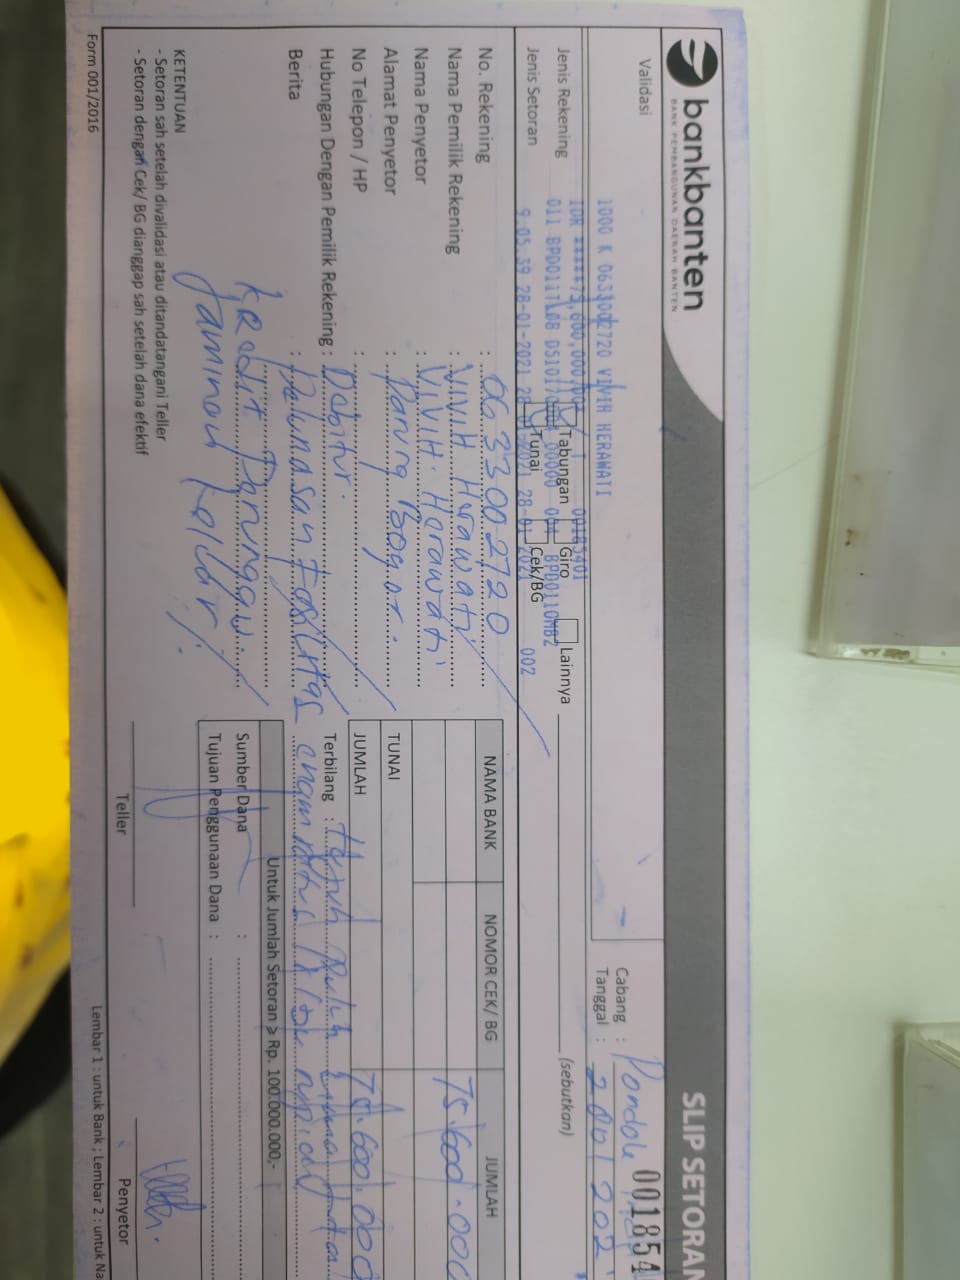 bankbanten
BANK PEMBANGUNAN DAERAH BANTEN
SLIP SETORAN
001854
Validasi
1000 K 0633002720 VIVIH HERAWATI
Cabang :
Tanggal :
IDR ******75,600,000.00
00185401
Jenis Rekening
Tabungan
Giro
Lainnya
(sebutkan)
Jenis Setoran
Tunai
Cek/BG
9:05:39 28-01-2021
28-01-2021
002
No. Rekening : 0633002720
Nama Pemilik Rekening : VIVIH Herawati
Nama Penyetor : VIVIH. Herawati
Alamat Penyetor : Parung Bogor.
No Telepon / HP :
Hubungan Dengan Pemilik Rekening : Debitur.
Berita : Pelunasan Fasilitas
Kredit
Jaminan
NAMA BANK
NOMOR CEK/ BG
JUMLAH
75.600.000
TUNAI
JUMLAH
75.600.000
Terbilang : Tujuh Puluh
enam ratus ribu rupiah
Untuk Jumlah Setoran ≥ Rp. 100.000.000,-
Sumber Dana :
Tujuan Penggunaan Dana :
KETENTUAN
- Setoran sah setelah divalidasi atau ditandatangani Teller
- Setoran dengan Cek/ BG dianggap sah setelah dana efektif
Teller
Penyetor
Form 001/2016
Lembar 1 : untuk Bank ; Lembar 2 : untuk Na